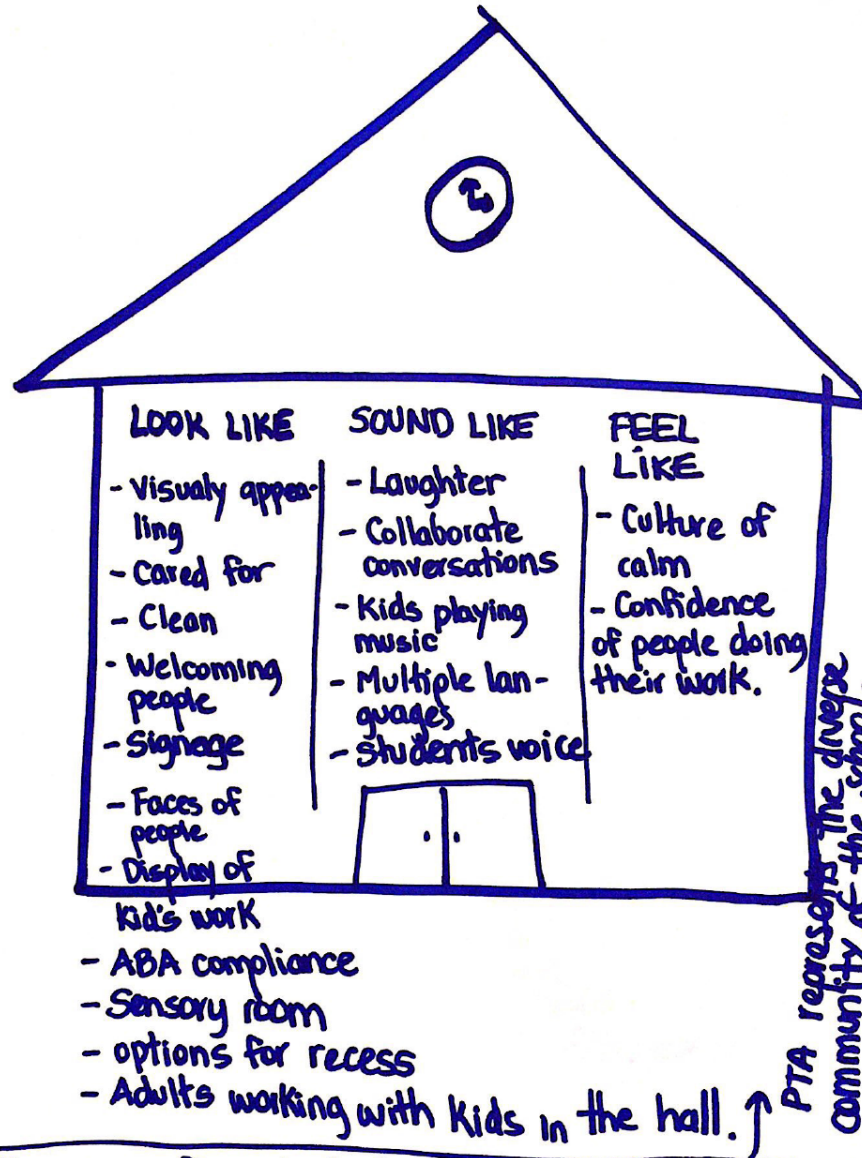 LOOK LIKE
- Visualy appea-
ling
- Cared for
- Clean
- Welcoming
people
- Signage
- Faces of
people
- Display of
kid's work
- ABA compliance
- Sensory room
- options for recess
- Adults working with kids in the hall.
SOUND LIKE
- Laughter
- Collaborate
conversations
- Kids playing
music
- Multiple lan-
guages
- Students voice
FEEL
LIKE
- Culture of
calm
- Confidence
of people doing
their work.
PTA represents the diverse
community of the school.